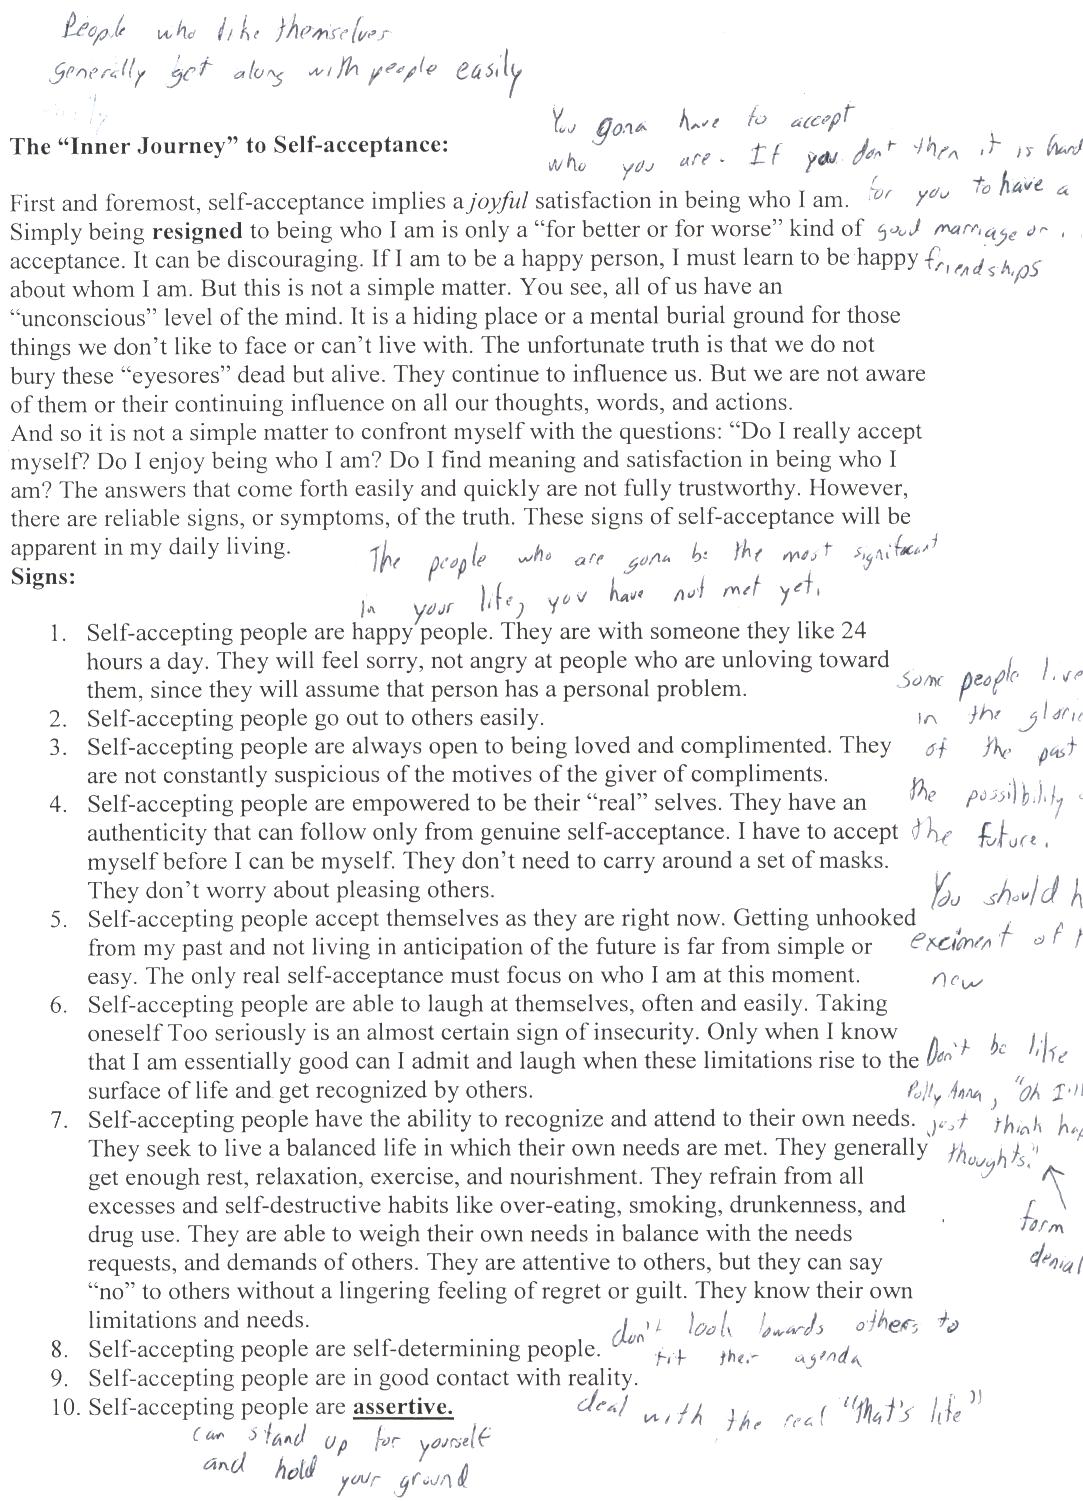 People who like themselves
generally get along with people easily
The “Inner Journey” to Self-acceptance:
You gona have to accept
who you are. If you don't then it is hard
for you to have a
good marriage or
friendships
First and foremost, self-acceptance implies a joyful satisfaction in being who I am.
Simply being resigned to being who I am is only a “for better or for worse” kind of
acceptance. It can be discouraging. If I am to be a happy person, I must learn to be happy
about whom I am. But this is not a simple matter. You see, all of us have an
“unconscious” level of the mind. It is a hiding place or a mental burial ground for those
things we don’t like to face or can’t live with. The unfortunate truth is that we do not
bury these “eyesores” dead but alive. They continue to influence us. But we are not aware
of them or their continuing influence on all our thoughts, words, and actions.
And so it is not a simple matter to confront myself with the questions: “Do I really accept
myself? Do I enjoy being who I am? Do I find meaning and satisfaction in being who I
am? The answers that come forth easily and quickly are not fully trustworthy. However,
there are reliable signs, or symptoms, of the truth. These signs of self-acceptance will be
apparent in my daily living.
The people who are gona be the most significant
in your life, you have not met yet.
Signs:
1. Self-accepting people are happy people. They are with someone they like 24
hours a day. They will feel sorry, not angry at people who are unloving toward
them, since they will assume that person has a personal problem.
2. Self-accepting people go out to others easily.
3. Self-accepting people are always open to being loved and complimented. They
are not constantly suspicious of the motives of the giver of compliments.
4. Self-accepting people are empowered to be their “real” selves. They have an
authenticity that can follow only from genuine self-acceptance. I have to accept
myself before I can be myself. They don’t need to carry around a set of masks.
They don’t worry about pleasing others.
Some people live
in the
of the past
the possilbility
the future.
5. Self-accepting people accept themselves as they are right now. Getting unhooked
from my past and not living in anticipation of the future is far from simple or
easy. The only real self-acceptance must focus on who I am at this moment.
You should
exciment of
new
6. Self-accepting people are able to laugh at themselves, often and easily. Taking
oneself Too seriously is an almost certain sign of insecurity. Only when I know
that I am essentially good can I admit and laugh when these limitations rise to the
surface of life and get recognized by others.
Don't be like
Polly Anna, "Oh I'll
just think
thoughts."
form
denial
7. Self-accepting people have the ability to recognize and attend to their own needs.
They seek to live a balanced life in which their own needs are met. They generally
get enough rest, relaxation, exercise, and nourishment. They refrain from all
excesses and self-destructive habits like over-eating, smoking, drunkenness, and
drug use. They are able to weigh their own needs in balance with the needs
requests, and demands of others. They are attentive to others, but they can say
“no” to others without a lingering feeling of regret or guilt. They know their own
limitations and needs.
8. Self-accepting people are self-determining people.
don't look towards others to
fit their agenda
9. Self-accepting people are in good contact with reality.
deal with the real "that's life"
10. Self-accepting people are assertive.
can stand up for yourself
and hold your ground